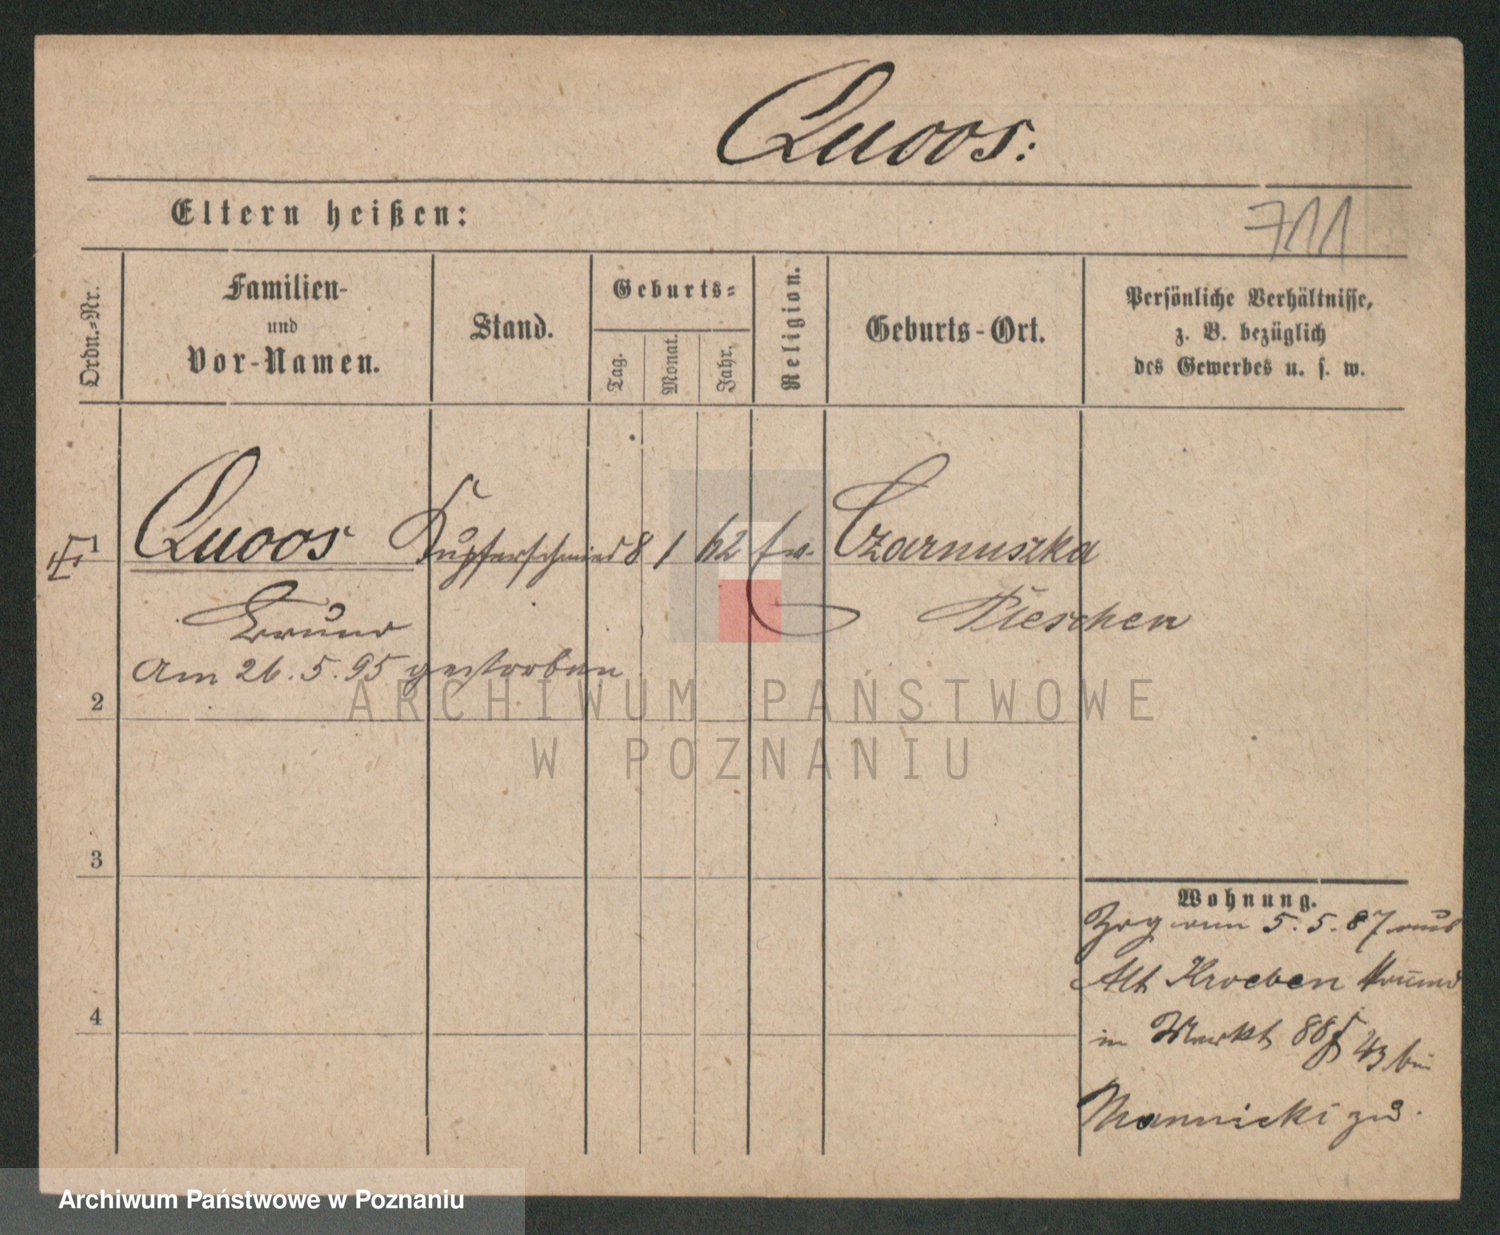 Quoos:
Eltern heißen:
711
Ordn.=Nr.
Familien-
und
Vor-Namen.
Stand.
Geburts=
Tag.
Monat.
Jahr.
Religion.
Geburts-Ort.
Persönliche Verhältnisse,
z. B. bezüglich
des Gewerbes u. s. w.
1 Quoos Kupferschmied 8 1 62 Czarnuszka
Bruno Pleschen
Am 26.5.95 gestorben
2
3
4
Wohnung.
Zog am 5.5.87 aus
Alt Kroeben
in Markt 88 43 bei
Mannicki zu.
ARCHIWUM PAŃSTWOWE
W POZNANIU
Archiwum Państwowe w Poznaniu